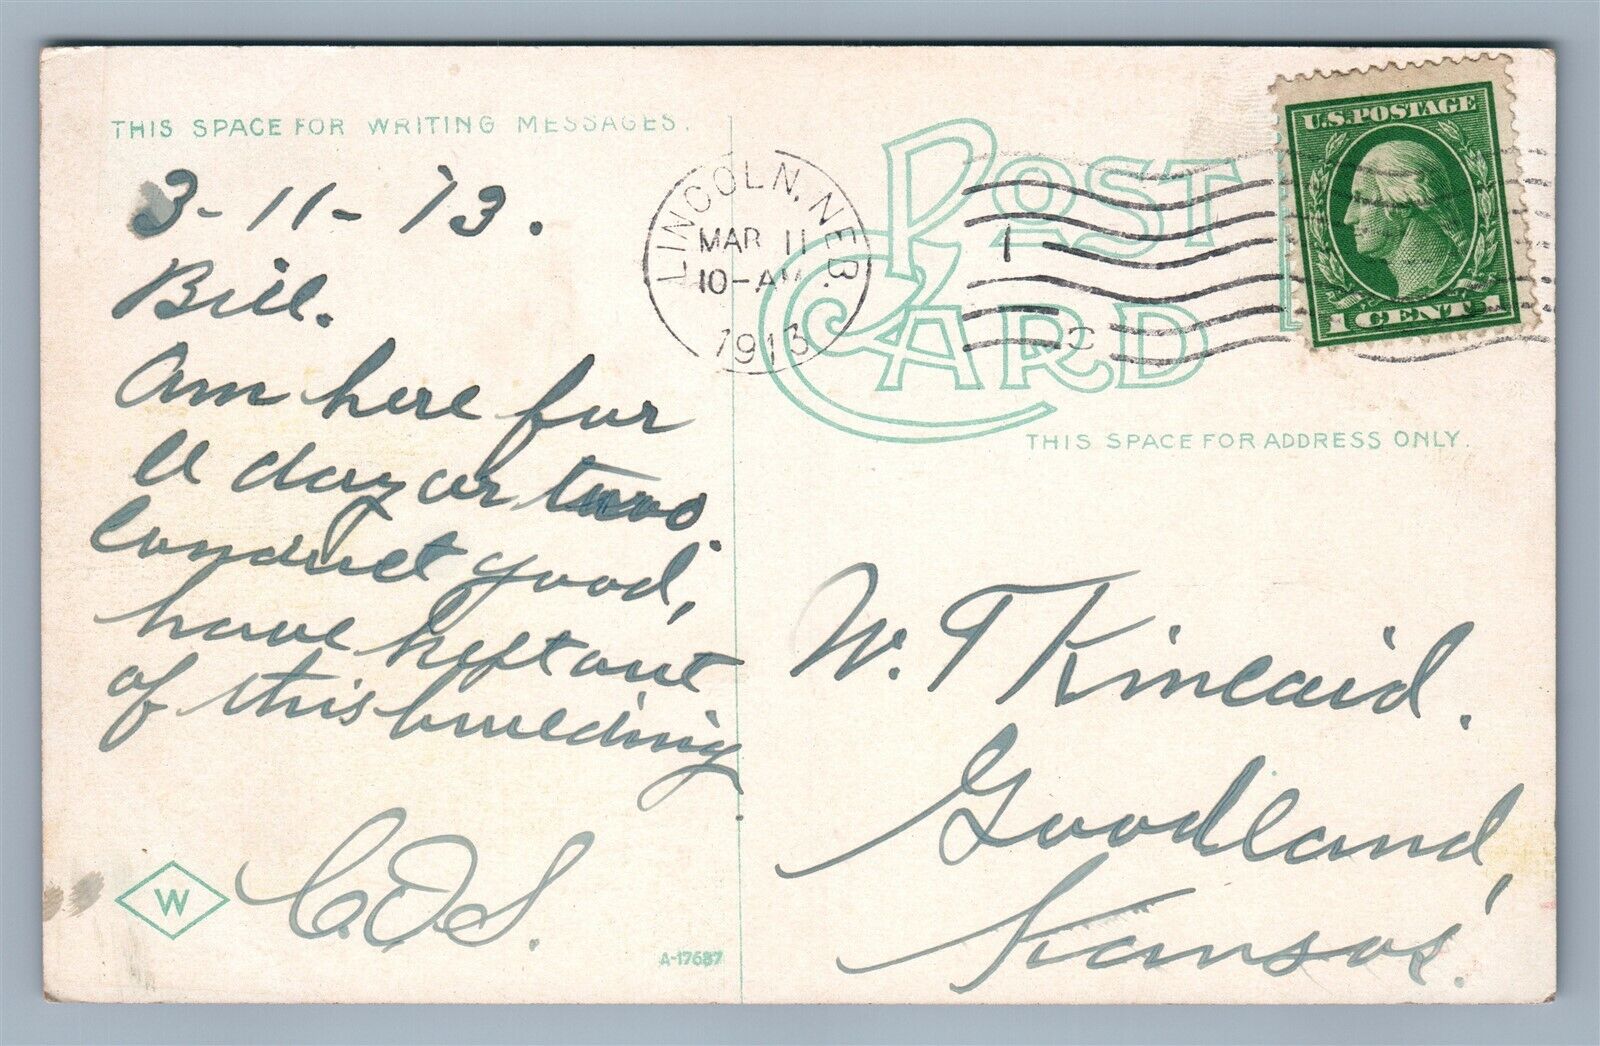 THIS SPACE FOR WRITING MESSAGES.
3-11-13.
Bill.
Am here for
a day or two.
Conduct good,
have kept out
of this building.
C.O.S.
W
A-17687
LINCOLN, NEB.
MAR 11
10-AM
1913
1
C
POST
CARD
U.S. POSTAGE
1 CENT 1
THIS SPACE FOR ADDRESS ONLY.
W. T Kincaid.
Goodland,
Kansas.